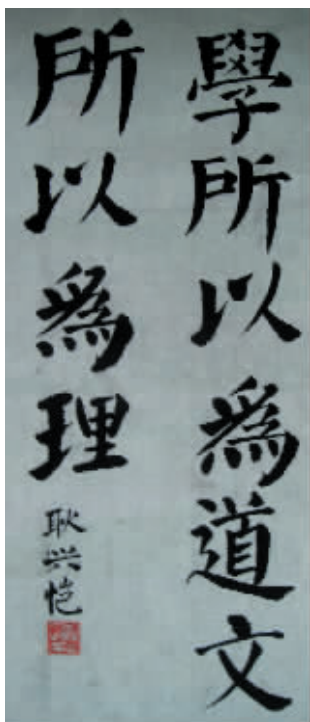 學所以爲道文
所以爲理
耿兴恺